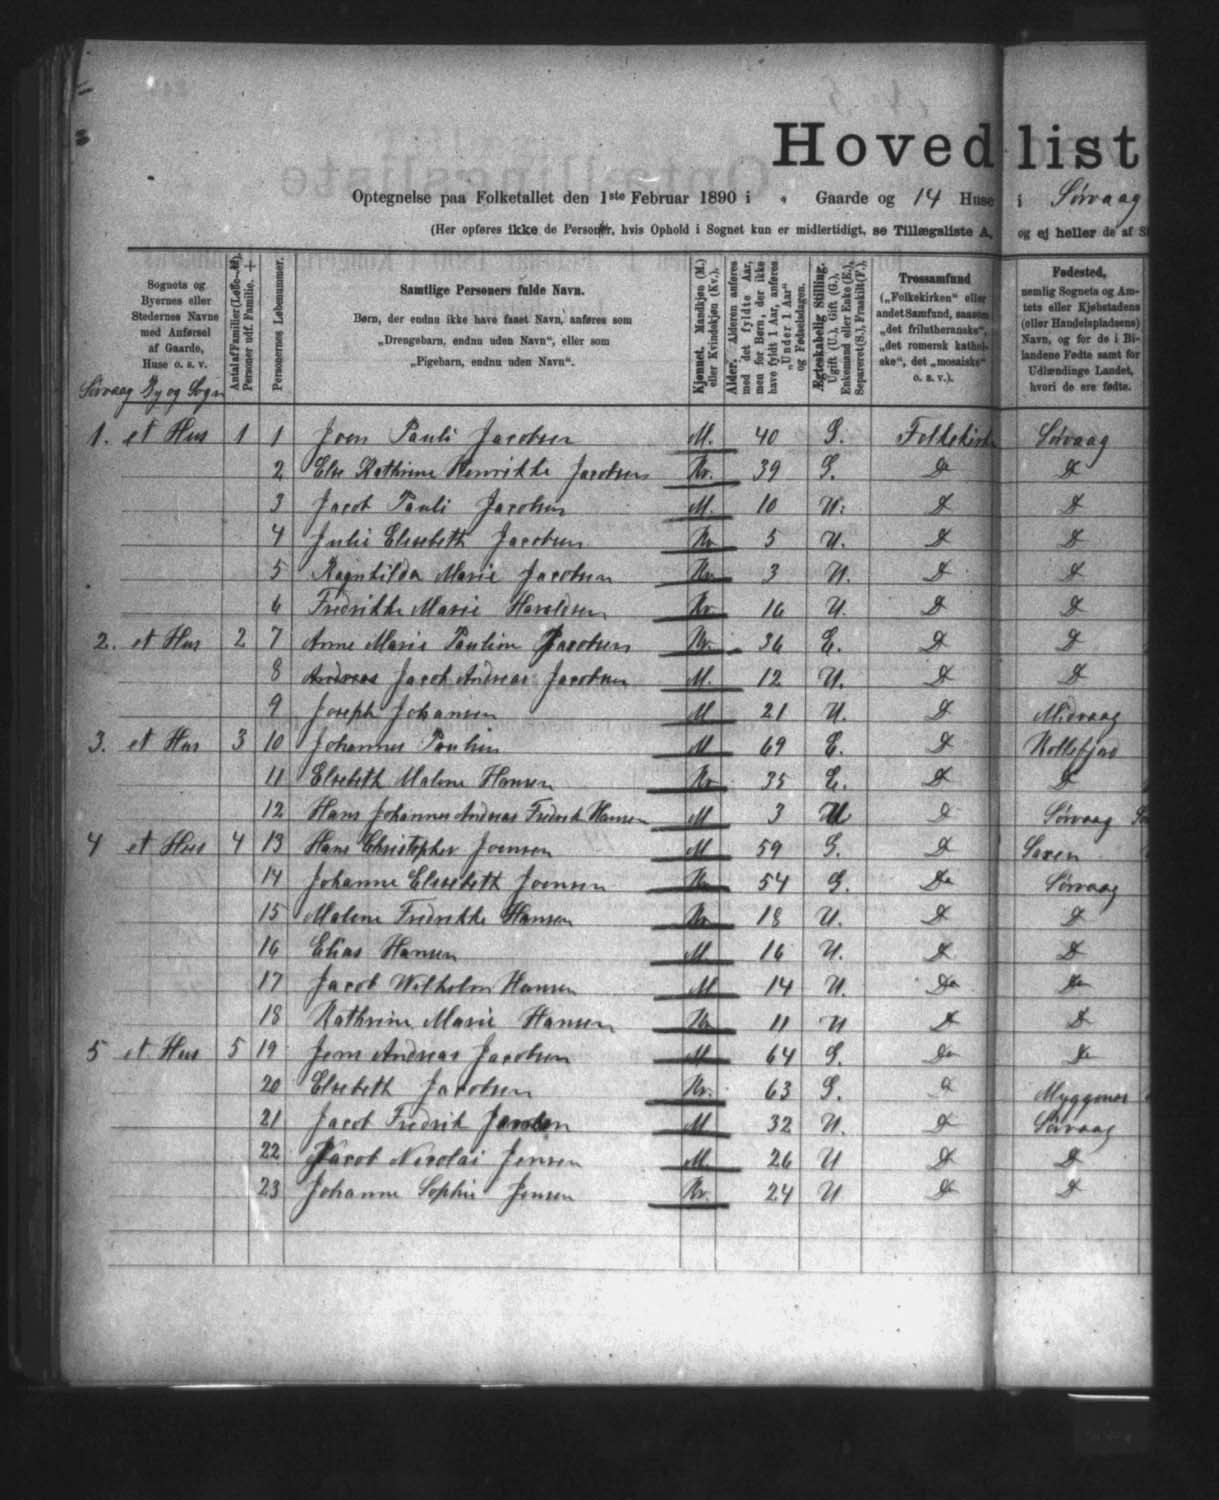 Hovedlist
Optegnelse paa Folketallet den 1ste Februar 1890 i „ Gaarde og 14 Huse i Sörvaag
(Her opføres ikke de Personer, hvis Ophold i Sognet kun er midlertidigt, se Tillægsliste A, og ej heller de af
Sognets og Byernes eller Stedernes Navne med Anførsel af Gaarde, Huse o. s. v.
Antal af Familier (Løbe-№). Personer udf. Familie. +
Personernes Løbenummer.
Samtlige Personers fulde Navn.
Børn, der endnu ikke have faaet Navn, anføres som
„Drengebarn, endnu uden Navn“, eller som
„Pigebarn, endnu uden Navn“.
Kjønnet. Mandkjøn (M.) eller Kvindekjøn (Kv.).
Alder. Alderen anføres med det fyldte Aar, men for Børn, der ikke have fyldt 1 Aar, anføres „Under 1 Aar“ og Fødselsdagen.
Ægteskabelig Stilling. Ugift (U.), Gift (G.), Enkemand eller Enke (E.), Separeret (S.), Fraskilt (F.).
Trossamfund („Folkekirken“ eller andet Samfund, saasom „det frilutheranske“, „det romersk katholske“, det „mosaiske“ o. s. v.).
Fødested, nemlig Sognets og Amtets eller Kjøbstadens (eller Handelspladsens) Navn, og for de i Bilandene Fødte samt for Udlændinge Landet, hvori de ere fødte.
Sörvaag By og Sogn
1. et Hus 1 1 Joen Pauli Jacobsen M. 40 G. Folkekirke Sörvaag
2 Else Kathrine Henrikke Jacobsen Kv. 39 G. Do Do
3 Jacob Pauli Jacobsen M. 10 U. Do Do
4 Julie Elisebeth Jacobsen Kv 5 U. Do Do
5 Ragnhilda Marie Jacobsen Kv. 3 U. Do Do
6 Fredrikke Marie Haraldsen Kv 16 U. Do Do
2. et Hus 2 7 Anne Marie Pauline Jacobsen Kv. 36 E. Do Do
8 Andreas Jacob Andreas Jacobsen M. 12 U. Do Do
9 Joseph Johansen M 21 U. Do Midvaag
3. et Hus 3 10 Johannes Paulsen M 69 E. Do Kollefjao
11 Elsebeth Malene Hansen Kv 35 E. Do Do
12 Hans Johannes Andreas Fredrik Hansen M 3 U Do Sörvaag
4 et Hus 4 13 Hans Christopher Joensen M 59 G. Do Saxen
14 Johanne Elisebeth Joensen Kv 54 G. Do Sörvaag
15 Malene Fredrikke Hansen Kv 18 U. Do Do
16 Elias Hansen M. 16 U. Do Do
17 Jacob Wilhelm Hansen M 14 U. Do Do
18 Kathrine Marie Hansen Kv 11 U Do Do
5 et Hus 5 19 Jens Andreas Jacobsen M 64 G. Do Do
20 Elsebeth Jacobsen Kv. 63 G. Do Myggenes
21 Jacob Fredrik M 32 U. Do Sörvaag
22 Jacob Nicolai Jensen M. 26 U Do Do
23 Johanne Sophie Jensen Kv. 24 U Do Do